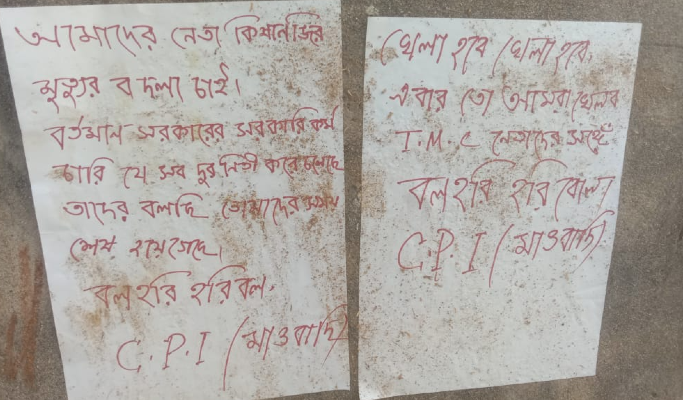 আমাদের নেতা কিষানজির
মৃত্যুর বদলা চাই।
বর্তমান সরকারের সরকারি কর্ম
চারি যে সব দুর্নিতী করে চলেছে
তাদের বলছি তোমাদের সময়
শেষ হয়ে গেছে।
বল হরি হরি বল.
C.P.I (মাওবাদি)
খেলা হবে খেলা হবে,
এবার তো আমরা খেলব
T.M.C নেতাদের সঙ্গে
বল হরি হরি বোল।
C.P.I (মাওবাদি)